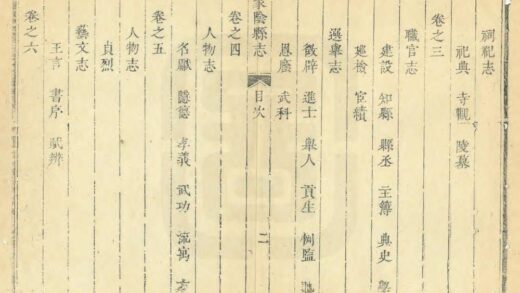 祠祀志
祀典 寺觀 陵墓
卷之三
職官志
建設 知縣 縣丞 主簿 典史
廵檢 宦績
選舉志
徵辟 進士 舉人 貢生 例監
恩廕 武科
陰縣志 目次 二
卷之四
人物志
名獻 隱德 孝義 武功 流寓
卷之五
人物志
貞烈
藝文志
王言 書序 賦辨
卷之六